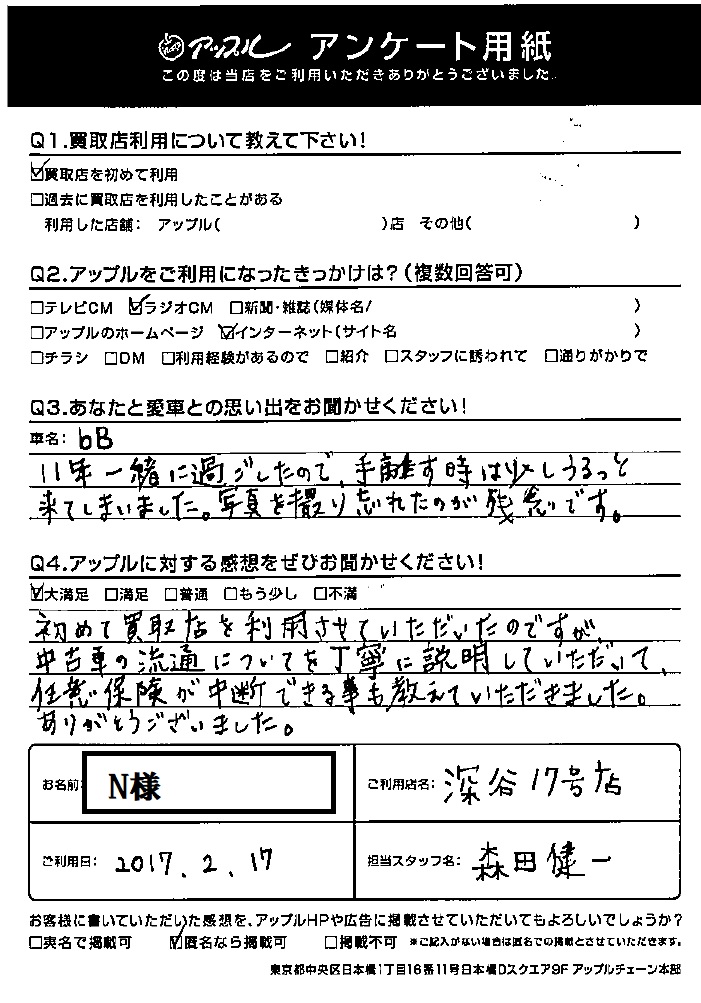 アップル アンケート用紙
この度は当店をご利用いただきありがとうございました。
Q1.買取店利用について教えて下さい!
☑買取店を初めて利用
□過去に買取店を利用したことがある
利用した店舗: アップル( )店 その他( )
Q2.アップルをご利用になったきっかけは?(複数回答可)
□テレビCM ☑ラジオCM □新聞・雑誌(媒体名/ )
□アップルのホームページ ☑インターネット(サイト名 )
□チラシ □DM □利用経験があるので □紹介 □スタッフに誘われて □通りがかりで
Q3.あなたと愛車との思い出をお聞かせください!
車名: bB
11年一緒に過ごしたので、手離す時は少しうるっと
来てしまいました。写真を撮り忘れたのが残念です。
Q4.アップルに対する感想をぜひお聞かせください!
☑大満足 □満足 □普通 □もう少し □不満
初めて買取店を利用させていただいたのですが、
中古車の流通についてを丁寧に説明していただいて、
任意保険が中断できる事も教えていただきました。
ありがとうございました。
お名前: N様
ご利用店名: 深谷17号店
ご利用日: 2017.2.17
担当スタッフ名: 森田健一
お客様に書いていただいた感想を、アップルHPや広告に掲載させていただいてもよろしいでしょうか?
□実名で掲載可 ☑匿名なら掲載可 □掲載不可 ※ご記入がない場合は匿名での掲載とさせていただきます。
東京都中央区日本橋1丁目16番11号日本橋Dスクエア9F アップルチェーン本部